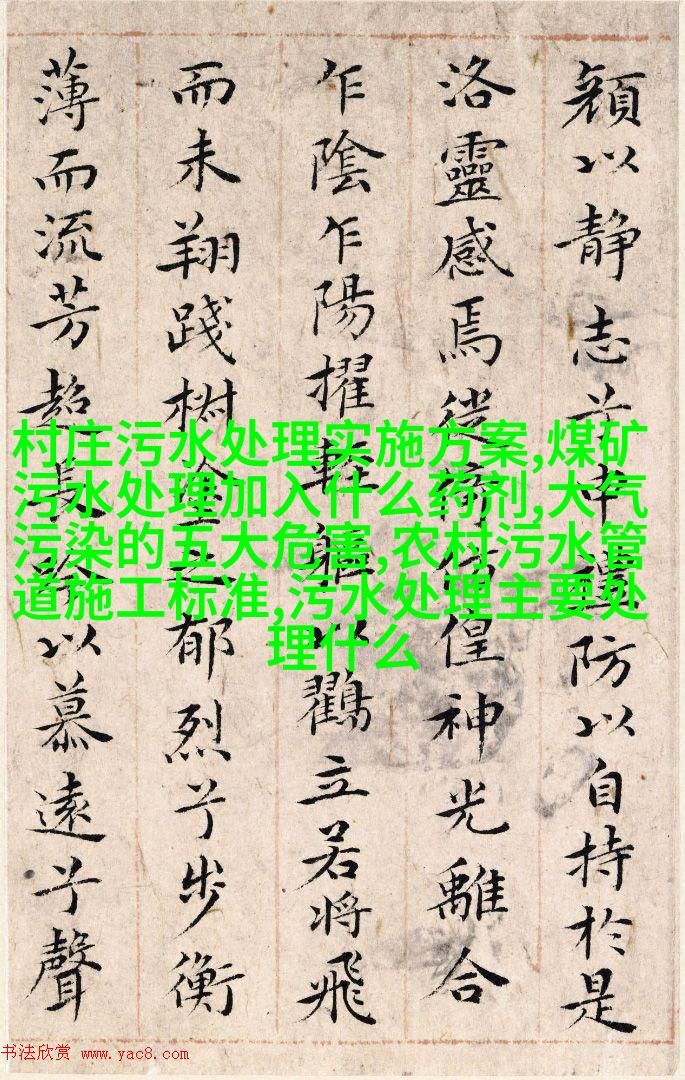 顔以静志兮申禮防以自持於是
洛靈感焉徙倚彷偟神光離合
乍陰乍陽擢輕軀以鸖立若將飛
而未翔踐椒塗之郁烈兮步衡
薄而流芳超長吟以慕遠兮聲
村庄污水处理实施方案,煤矿
污水处理加入什么药剂,大气
污染的五大危害,农村污水管
道施工标准,污水处理主要处
理什么
书法欣赏 www.yac8.com